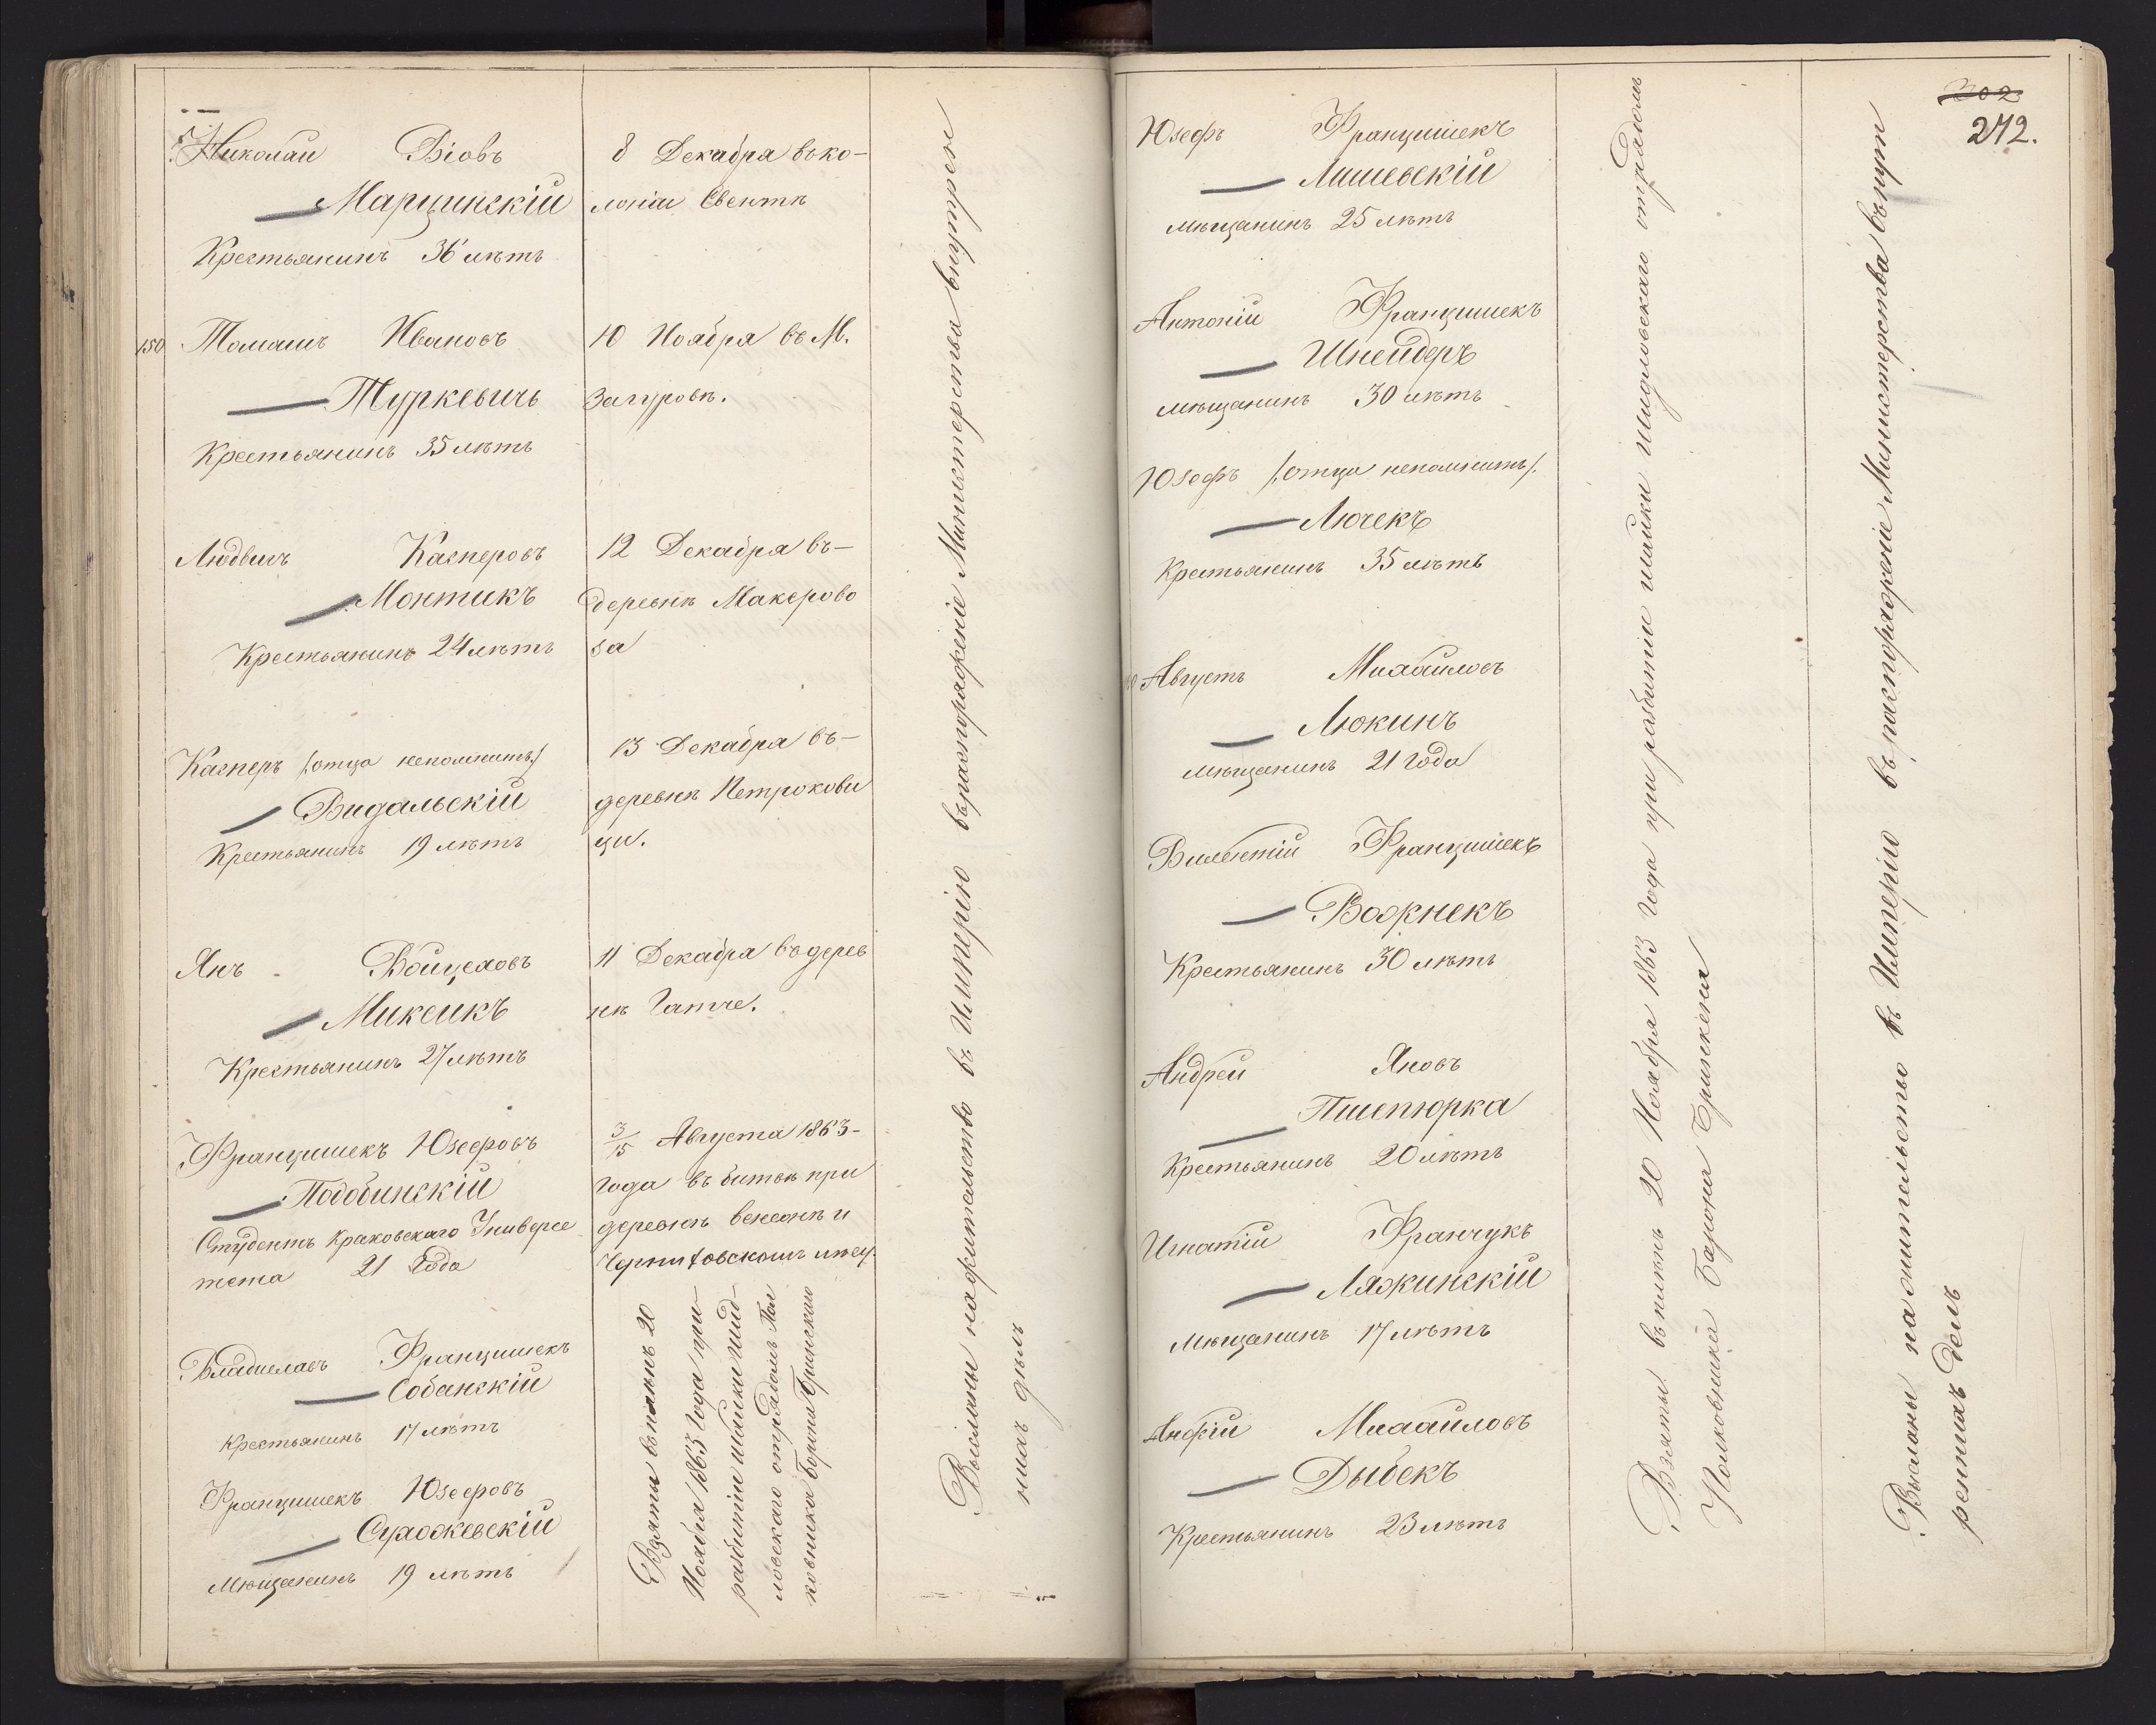 Николай Віовъ
Марцинскій
Крестьянинъ 36 лѣтъ
8 Декабря въ ко-
лоніи Свентѣ
150 Томашъ Ивановъ
Туркевичь
Крестьянинъ 35 лѣтъ
10 Ноября въ М.
Загуровѣ.
Людвигъ Касперовъ
Монтикъ
Крестьянинъ 24 лѣтъ
12 Декабря въ-
деревнѣ Макерово
за
Касперъ /:отца непомнитъ:/
Видальскій
Крестьянинъ 19 лѣтъ
13 Декабря въ-
деревнѣ Петрокови
ци.
Янъ Войцеховъ
Микеикъ
Крестьянинъ 27 лѣтъ
11 Декабря въ дерев
нѣ Гатче.
Францишекъ Юзефовъ
Подобинскій
Студентъ Краковскаго Универсе
тета 21 Года
3/15 Августа 1863-
года въ битвѣ при
деревнѣ
Владиславъ Францишекъ
Собанскій
Крестьянинъ 17 лѣтъ
Францишекъ Юзефовъ
Сухоржевскій
Мѣщанинъ 19 лѣтъ
Взяты въ плѣнъ 20
Ноября 1863 года при-
разбитіи шайки шид-
ловскаго отрядомъ Пол
ковника Барона Бринкена
Высланы на жительство въ Имперію въ распоряженіе Министерства внутрен
нихъ дѣлъ
202
272.
Юзефъ Францишекъ
Лишевскій
мѣщанинъ 25 лѣтъ
Антоній Францишекъ
Шнейдеръ
мѣщанинъ 30 лѣтъ
Юзефъ /:отца непомнитъ/:
Лючекъ
Крестьянинъ 35 лѣтъ
Августъ Михайловъ
Люкинъ
мѣщанинъ 21 года
Викентій Францишекъ
Вожнекъ
Крестьянинъ 30 лѣтъ
Андрей Яновъ
Пшепюрка
Крестьянинъ 20 лѣтъ
Игнатій Францукъ
Ляжинскій
Мѣщанинъ 17 лѣтъ
Михайловъ
Дыбекъ
Крестьянинъ 23 лѣтъ
Взяты въ плѣнъ 20 Ноября 1863 года при разбитіи шайки шидловскаго отрядомъ
Полковника Барона Бринкена
Высланы на жительство въ Имперію въ распоряженіе Министерства внут
реннихъ Делъ